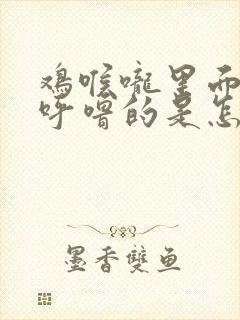 鸡喉咙里而
呼噜的是怎
墨香雙鱼